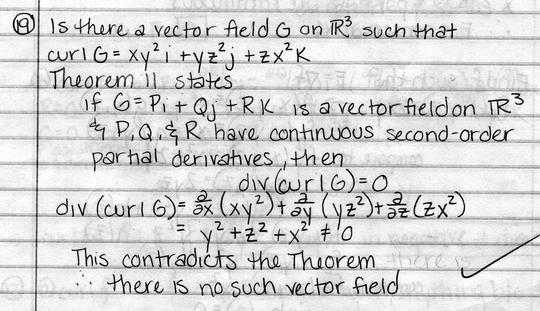 ⑲ Is there a vector field G on ℝ³ such that
curl G = xy²i + yz²j + zx²K
Theorem 11 states
if G = Pi + Qj + RK is a vector field on ℝ³
& P, Q, & R have continuous second-order
partial derivatives, then
div(curl G) = 0
div (curl G) = ∂/∂x (xy²) + ∂/∂y (yz²) + ∂/∂z (zx²)
= y² + z² + x² ≠ 0
This contradicts the Theorem
∴ there is no such vector field